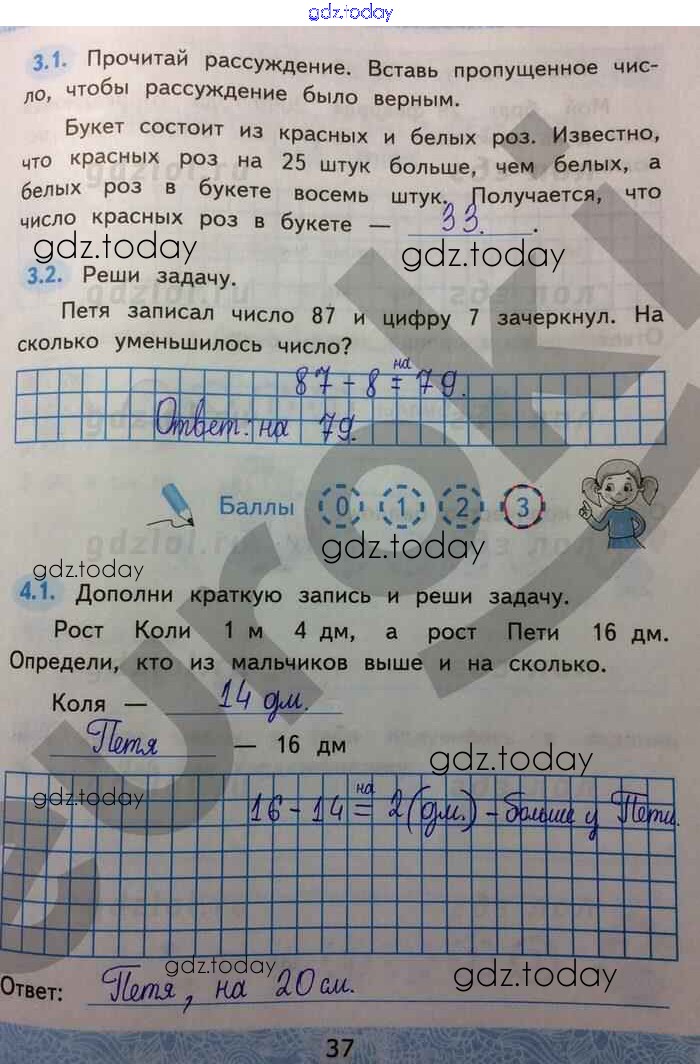 gdz.today
3.1. Прочитай рассуждение. Вставь пропущенное чис-
ло, чтобы рассуждение было верным.
Букет состоит из красных и белых роз. Известно,
что красных роз на 25 штук больше, чем белых, а
белых роз в букете восемь штук. Получается, что
число красных роз в букете — 33.
gdz.today gdz.today
3.2. Реши задачу.
Петя записал число 87 и цифру 7 зачеркнул. На
сколько уменьшилось число?
на
87 - 8 = 79.
Ответ: на 79.
Баллы 0 1 2 3
gdz.today
gdz.today
4.1. Дополни краткую запись и реши задачу.
Рост Коли 1 м 4 дм, а рост Пети 16 дм.
Определи, кто из мальчиков выше и на сколько.
Коля — 14 дм.
Петя — 16 дм
gdz.today
gdz.today
на
16 - 14 = 2 (дм.) - больше у Пети.
gdz.today gdz.today
Ответ: Петя, на 20 см.
37
euroki